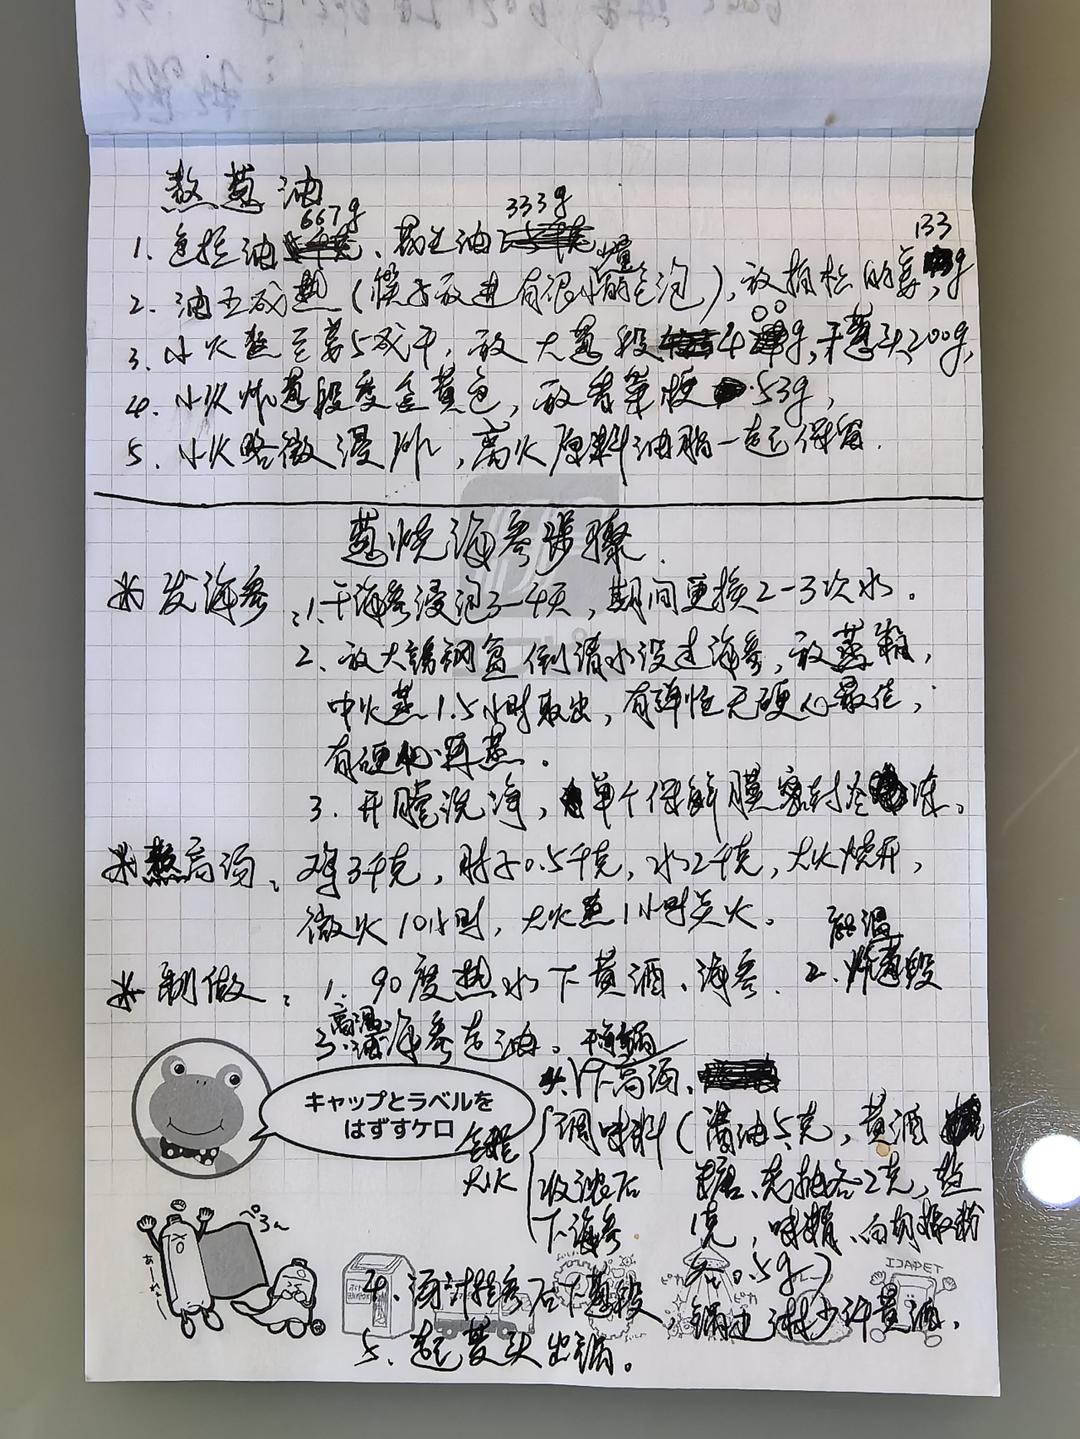 熬葱油
667g 333g
1. 色拉油、葱油
133
2. 油五成热(筷子放进有很小的气泡),放拍松的姜,g
3. 小火熬至姜5成干,放大葱段400g,干葱头200g,
4. 小火炸葱段变金黄色,放香菜梗53g,
5. 小火略微浸炸,离火原料油脂一起保留.
葱烧海参步骤.
※发海参:1.干海参浸泡3-4天,期间更换2-3次水。
2. 放大锈钢盆倒清水没过海参,放蒸箱,
中火蒸1.5小时取出,有弹性无硬心最佳;
有硬心再蒸.
3. 开膛洗净,单个保鲜膜密封冷冻。
※熬高汤:鸡3千克,肘子0.5千克,水2千克,大火烧开,
微火10小时,大火蒸1小时关火。
※制做:1. 90度热水下黄酒、海参. 2. 炸葱段
高温
3. 海参过油。
下高汤、
キャップとラベルを
はずすケロ
全程
大火
调味料(酱油5克,黄酒
收浓后 糖、老抽各2克,盐
下海参 1克,味精、白胡椒粉
各0.5g)
ぺろ〜ん
IJAPET
4. 汤汁挂参后下葱段,锅边淋少许黄酒.
5. 起芡头出锅。